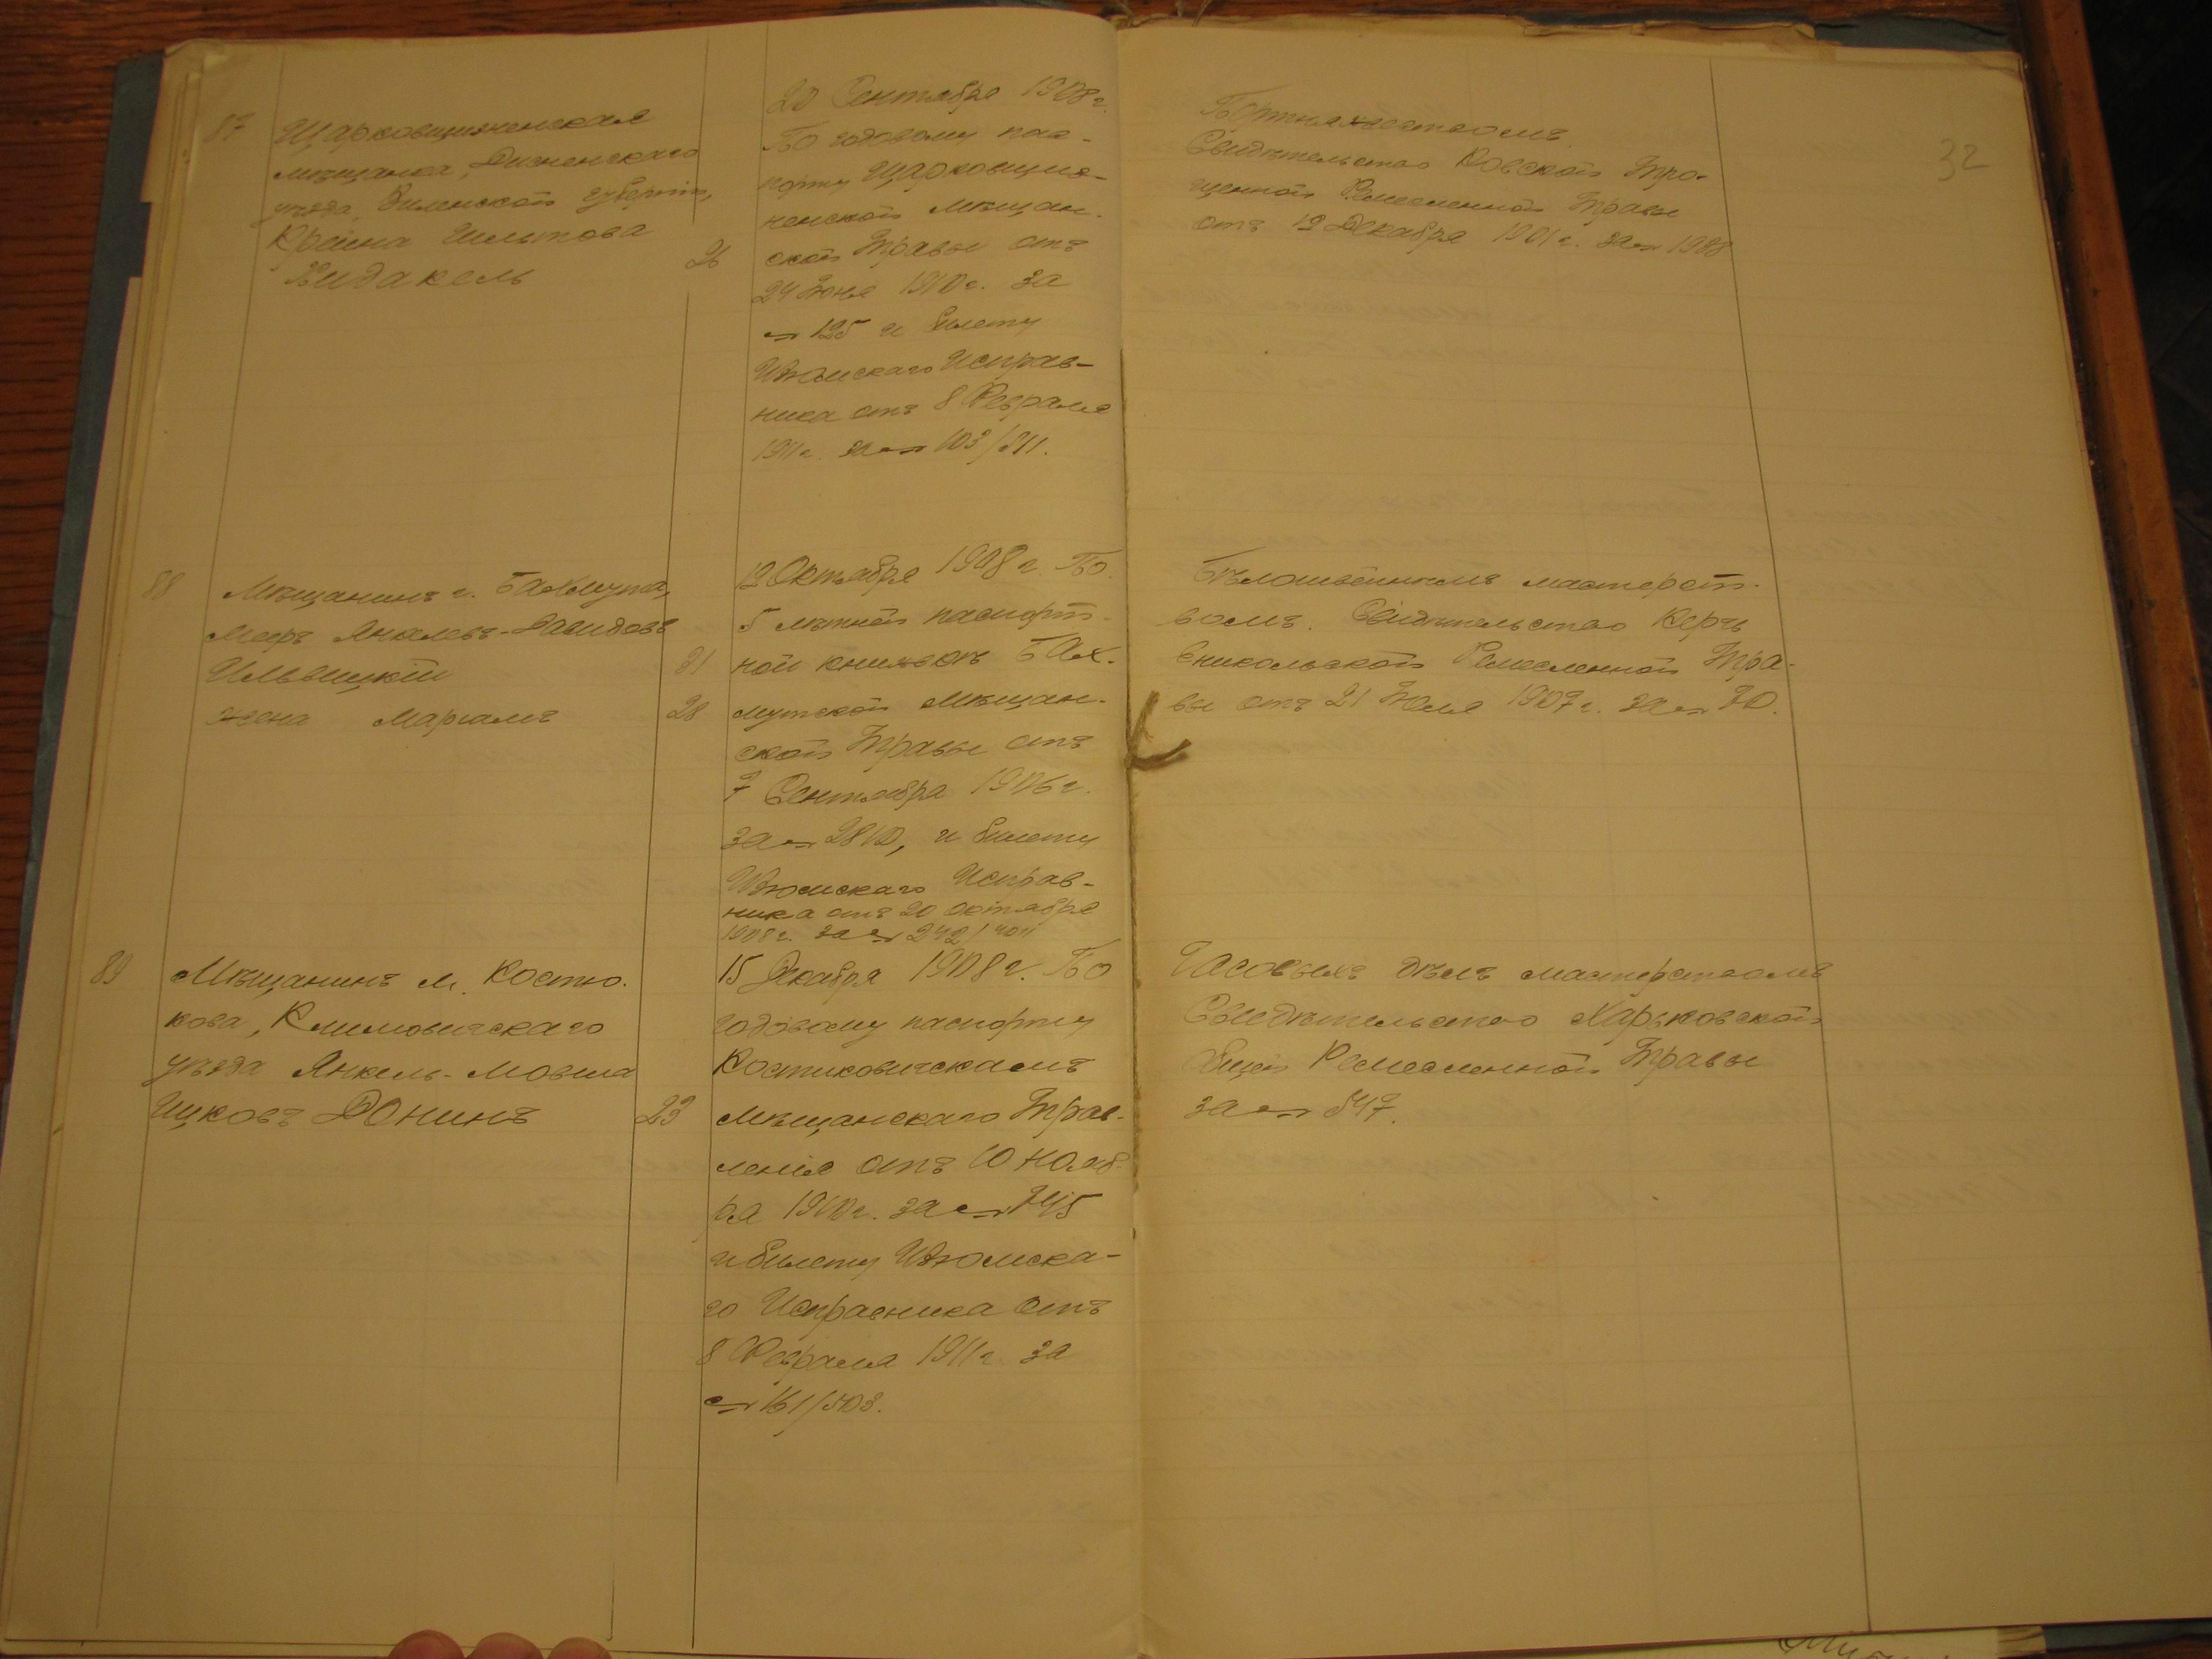 32
87
Шарковщизненская
мѣщанка, Дисненскаго
уѣзда, Виленской губерніи,
Крейна
Видакель
26
20 Сентября 1908 г.
По годовому пас-
порту Шарковщиз-
ненской Мѣщан-
ской Управы отъ
24 Іюня 1910 г. за
№ 125 и билету
Изюмскаго Исправ-
ника отъ 8 Февраля
1911 г. за №
Портняжествомъ.
Свидѣтельство Ковской Упро-
щенной Ремесленной Управы
отъ 19 Декабря 1901 г. за № 1988
88
Мѣщанинъ г. Бахмута,
Мееръ Янкелевъ-Давидовъ
Ильвицкій
31
жена Маріамъ
28
19 Октября 1908 г. По
5 лѣтней паспорт-
ной книжкѣ Бах-
мутской Мѣщан-
ской Управы отъ
7 Сентября 1906 г.
за № 2810, и билету
Изюмскаго Исправ-
ника отъ 20 Октября
1908 г. за № 242/
Бѣлошвейнымъ мастерст-
вомъ. Свидѣтельство Керчь
Еникольской Ремесленной Упра-
вы отъ 21 Іюля 1907 г. за № 70.
89
Мѣщанинъ м. Костю-
кова, Климовичскаго
уѣзда Янкель-Мовша
Ицковъ Донинъ
23
15 Декабря 1908 г. По
годовому паспорту
Костюковичскамъ
Мѣщанскаго Прав-
ленія отъ 10 Нояб-
ря 1910 г. за № 745
и билету Изюмска-
го Исправника отъ
8 Февраля 1911 г. за
№ 161/503.
Часовыхъ дѣлъ мастерствомъ
Свидѣтельство Харьковской
Общей Ремесленной Управы
за № 547.